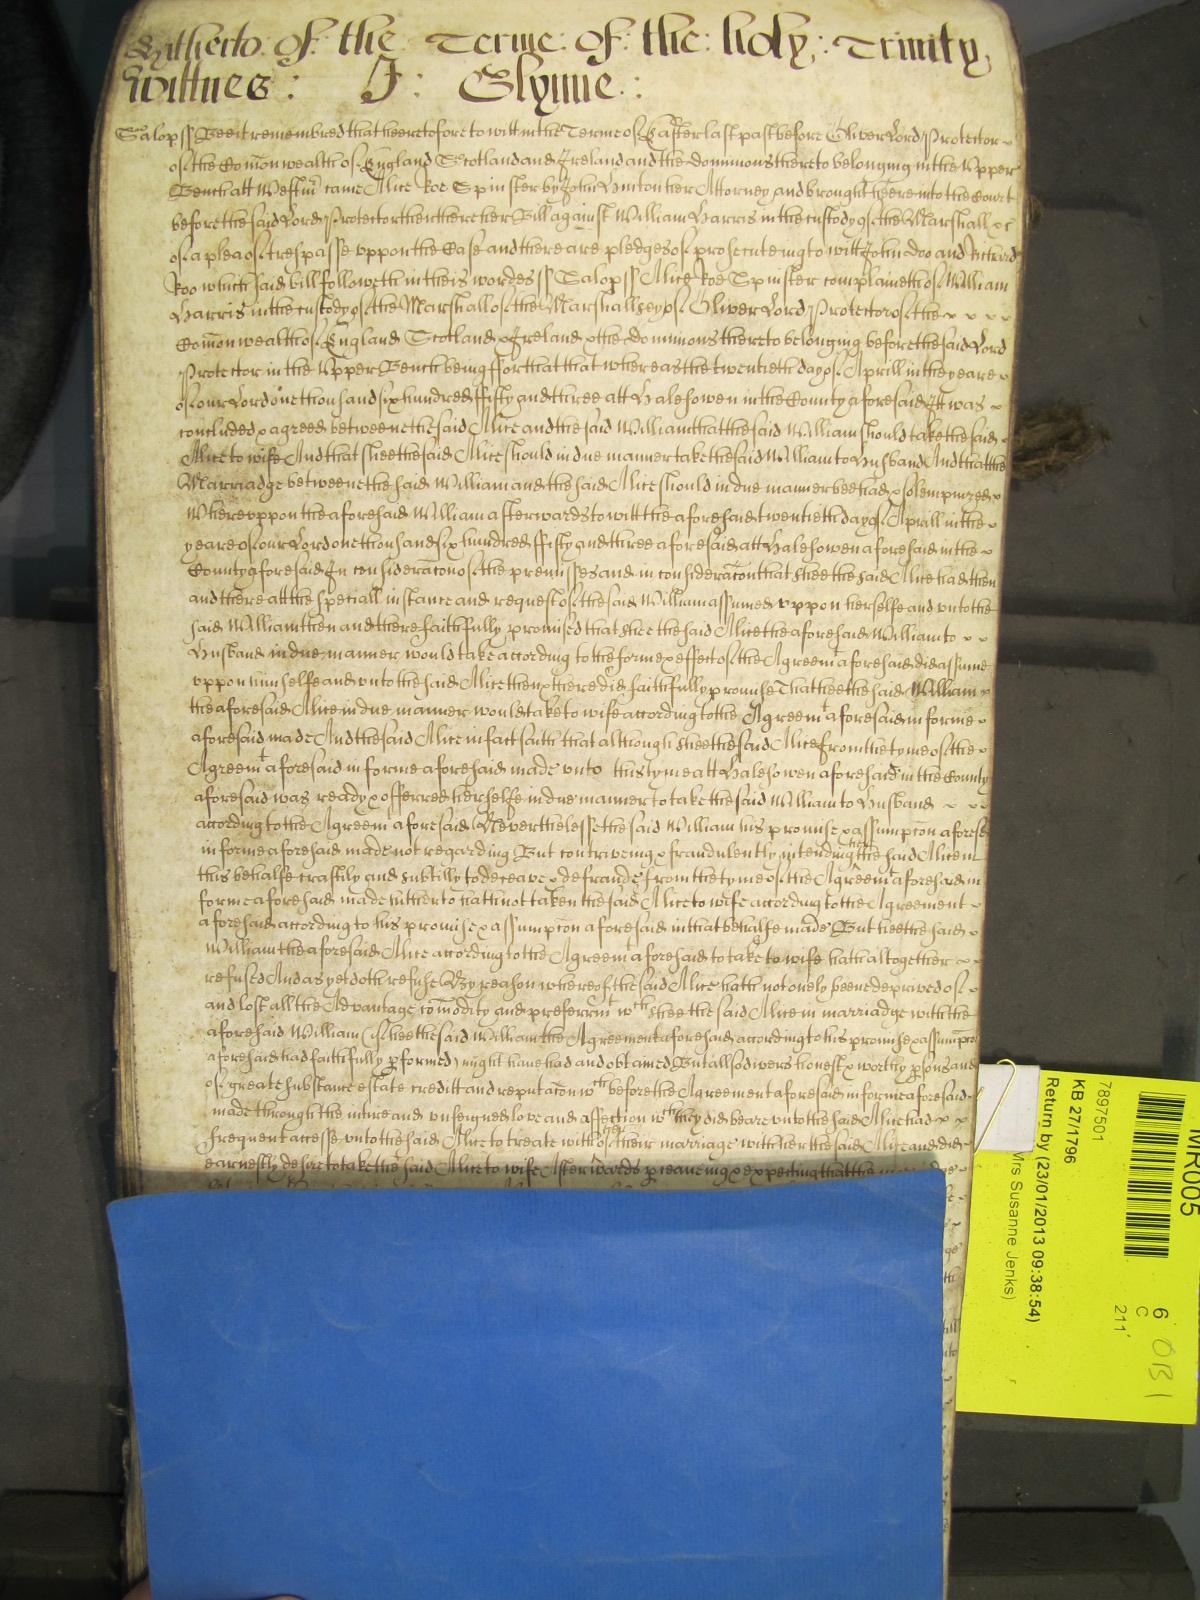 Hitherto of the Terme of the holy Trinity
Wittnes : J : Glynne :
Salop ss Bee it remembred that heeretofore to witt in the Terme of Easter last past before Oliver Lord Protector
of the Com̄onwealth of England Scotland and Ireland and the dominions thereto belonging in the Upper
Bench att Westm̄ came Alice Roe Spinster by John Hinton her Attorney and brought heere into the Court
before the said Lord Protector then there her Bill against William Harris in the custody of the Marshall &c
of a plea of trespasse uppon the Case and there are pledges of prosecuteing to witt John Doo and Richard
Roo which said bill followeth in theis wordes ss Salop ss Alice Roe Spinster complaineth of William
Harris in the custody of the Marshall of the Marshallsey of Oliver Lord Protector of the
Com̄onwealth of England Scotland & Ireland & the dominions thereto belonging before the said Lord
Protector in the Upper Bench being ffor that that whereas the twentieth day of Aprill in the yeare
of our Lord one thousand six hundred ffifty and three att Halesowen in the County aforesaid It was
concluded & agreed betweene the said Alice and the said William that the said William should take the said
Alice to wife And that shee the said Alice should in due manner take the said William to Husband And that the
Marriadge betweene the said William and the said Alice should in due manner bee had & solempnized
Whereuppon the aforesaid William afterwards to witt the aforesaid twentieth day of Aprill in the
yeare of our Lord one thousand six hundred ffifty and three aforesaid att Halesowen aforesaid in the
County aforesaid In consideraċon of the premisses and in consideraċon that shee the said Alice had then
and there att the speciall instance and request of the said William assumed uppon herselfe and unto the
said William then and there faithfully promised that shee the said Alice the aforesaid William to
Husband in due manner would take according to the forme & effect of the Agreemt aforesaid did assume
uppon himselfe and unto the said Alice then & there did faithfully promise That hee the said William
the aforesaid Alice in due manner would take to wife according to the Agreemt aforesaid in forme
aforesaid made And the said Alice in fact saith that although shee the said Alice from the tyme of the
Agreemt aforesaid in forme aforesaid made unto this tyme att Halesowen aforesaid in the County
aforesaid was ready & offerred herselfe in due manner to take the said William to Husband
according to the Agreemt aforesaid Neverthelesse the said William his promise & assumpċon aforesd
in forme aforesaid made not regarding But contriveing & fraudulently intending her the said Alice in
this behalfe craftily and subtilly to deceave & defraude from the tyme of the Agreemt aforesaid in
forme aforesaid made hitherto hath not taken the said Alice to wife according to the Agreement
aforesaid according to his promise & assumpċon aforesaid in that behalfe made But hee the said
William the aforesaid Alice according to the Agreemt aforesaid to take to wife hath altogether
refused And as yet doth refuse By reason whereof the said Alice hath not onely beene deprived of
and lost all the Advantage com̄odity and preferrmt wch shee the said Alice in marriadge with the
aforesaid William (if hee the said William the Agreement aforesaid according to his promise & assumpċon
aforesaid had faithfully pformed) might have had and obtained But allso divers honest & worthy psons and
of greate substance estate creditt and reputaċon wch before the Agreement aforesaid in forme aforesaid
made through the intire and unfeigned love and affection wch they did beare unto the said Alice had
frequent accesse unto the said Alice to treate with her of their marriage with her the said Alice and did
earnestly desire to take the said Alice to wife Afterwards pceaveing & expecting that the
MR005
7897501
KB 27/1796
Return by (23/01/2013 09:38:54)
Mrs Susanne Jenks)
6
C
211
OB1